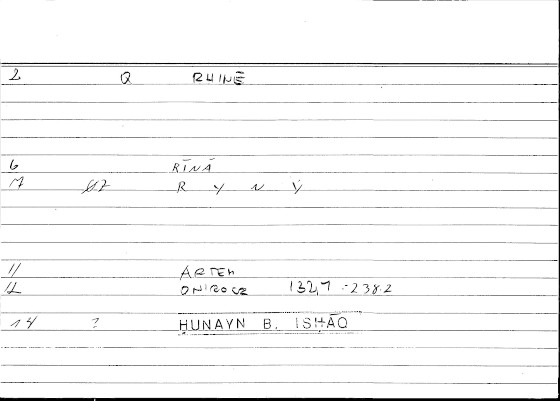 2 Q RHINĒ
6 RĪNĀ
7 R Y N Ẏ
11 ARTEM
12 ONIROCR 132,7 -238.2
14 ? ḤUNAYN B. ISḤĀQ